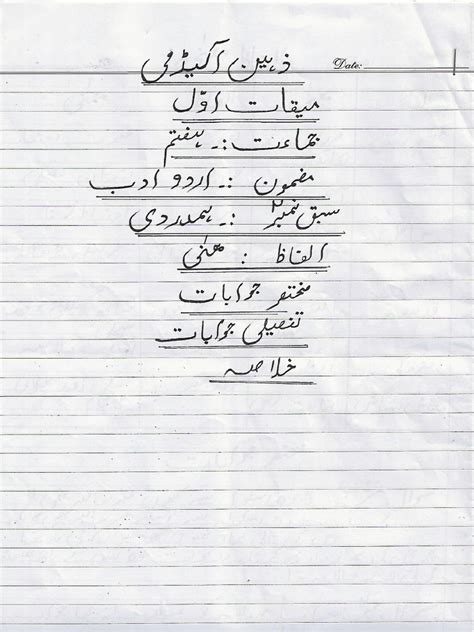 ذہین اکیڈمی
Date:
میقات اوّل
جماعت :۔ ہفتم
مضمون :۔ اردو ادب
سبق نمبر ۲ :۔ ہمدردی
الفاظ : معنی
مختصر جوابات
تفصیلی جوابات
خلاصہ